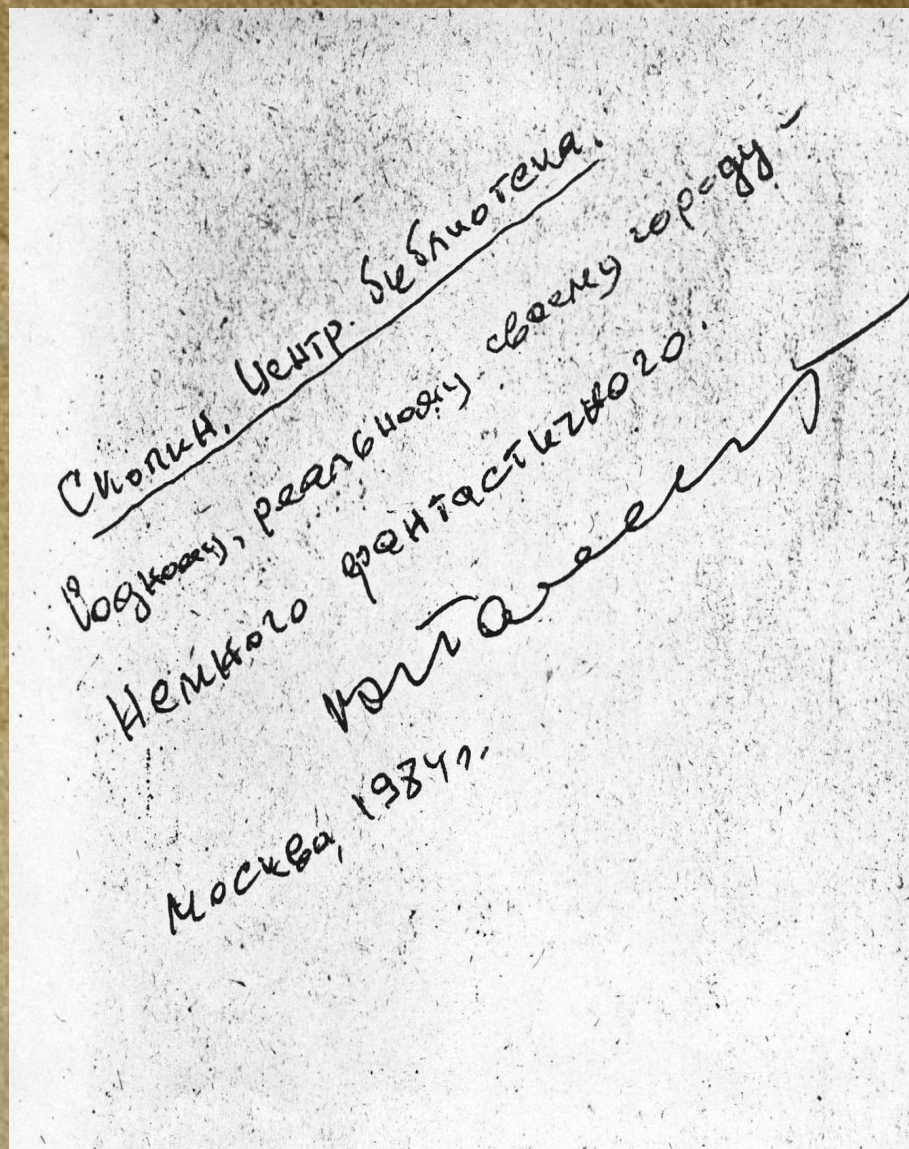 Скопин. Центр. библиотека.
Родному, реальному своему городу –
Немного фантастичного.
Москва, 1984 г.